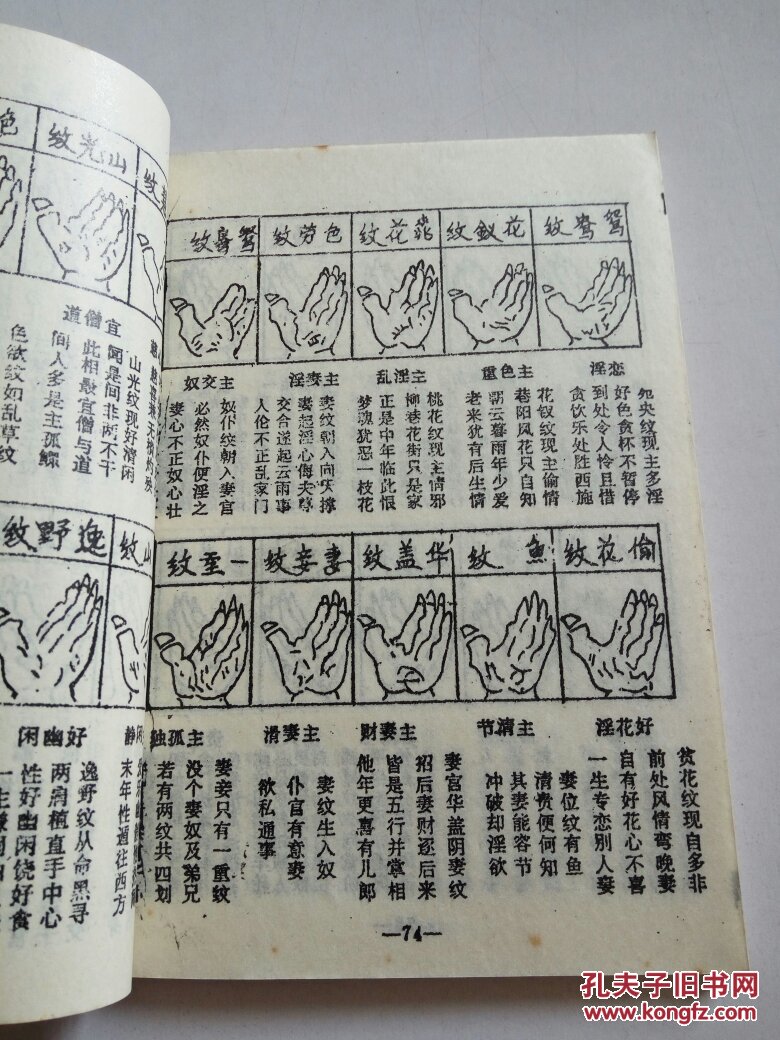 鸳鸯纹
花钗纹
花花纹
色劳纹
鸳鸯纹
恋淫
主色重
主淫乱
主妻淫
主交奴
怨央纹现主多淫
好色贪杯不暂停
到处令人怜且惜
贪饮乐处胜西施
花钗纹现主偷情
巷阳风花只自知
朝云暮雨年少爱
老来犹有后生情
桃花纹现主情邪
柳巷花街只是家
正是中年临此恨
梦魂犹恶一枝花
妻纹朝入向失撑
妻起淫心侮夫尊
交合遂起云雨事
人伦不正乱家门
奴仆纹朝入妻宫
必然奴仆便淫之
妻心不正奴心壮
偷花纹
鱼纹
华盖纹
妻妾纹
一重纹
好花淫
主清节
主妻财
主妻滑
孤独
贫花纹现自多非
前处风情弯晚妻
自有好花心不喜
一生专恋别人妻
妻位纹有鱼
清贵便何知
其妻能容节
冲破却淫欲
妻宫华盖阴妻纹
招后妻财逐后来
皆是五行并掌相
他年更喜有儿郎
妻纹生入奴
仆官有意妻
欲私通事
妻妾只有一重纹
没个妻奴及弟兄
若有两纹共四划
—74—
山光纹
色
宜僧道
山光纹现好清闲
闻是间非两不干
此相最宜僧与道
间人多是主孤鳏
色欲纹如乱草纹
山纹
逸野纹
静闲
好幽闲
末年性通往西方
逸野纹从命黑寻
两肩植直手中心
性好幽闲饶好贪
孔夫子旧书网
www.kongfz.com